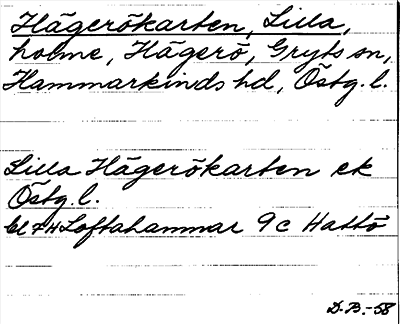 Hägerökarten, Lilla,
holme, Hägerö, Gryts sn,
Hammarkinds hd, Östg. l.
Lilla Hägerökarten ek
Östg. l.
Loftahammar 9c Hattö
D.B.-58